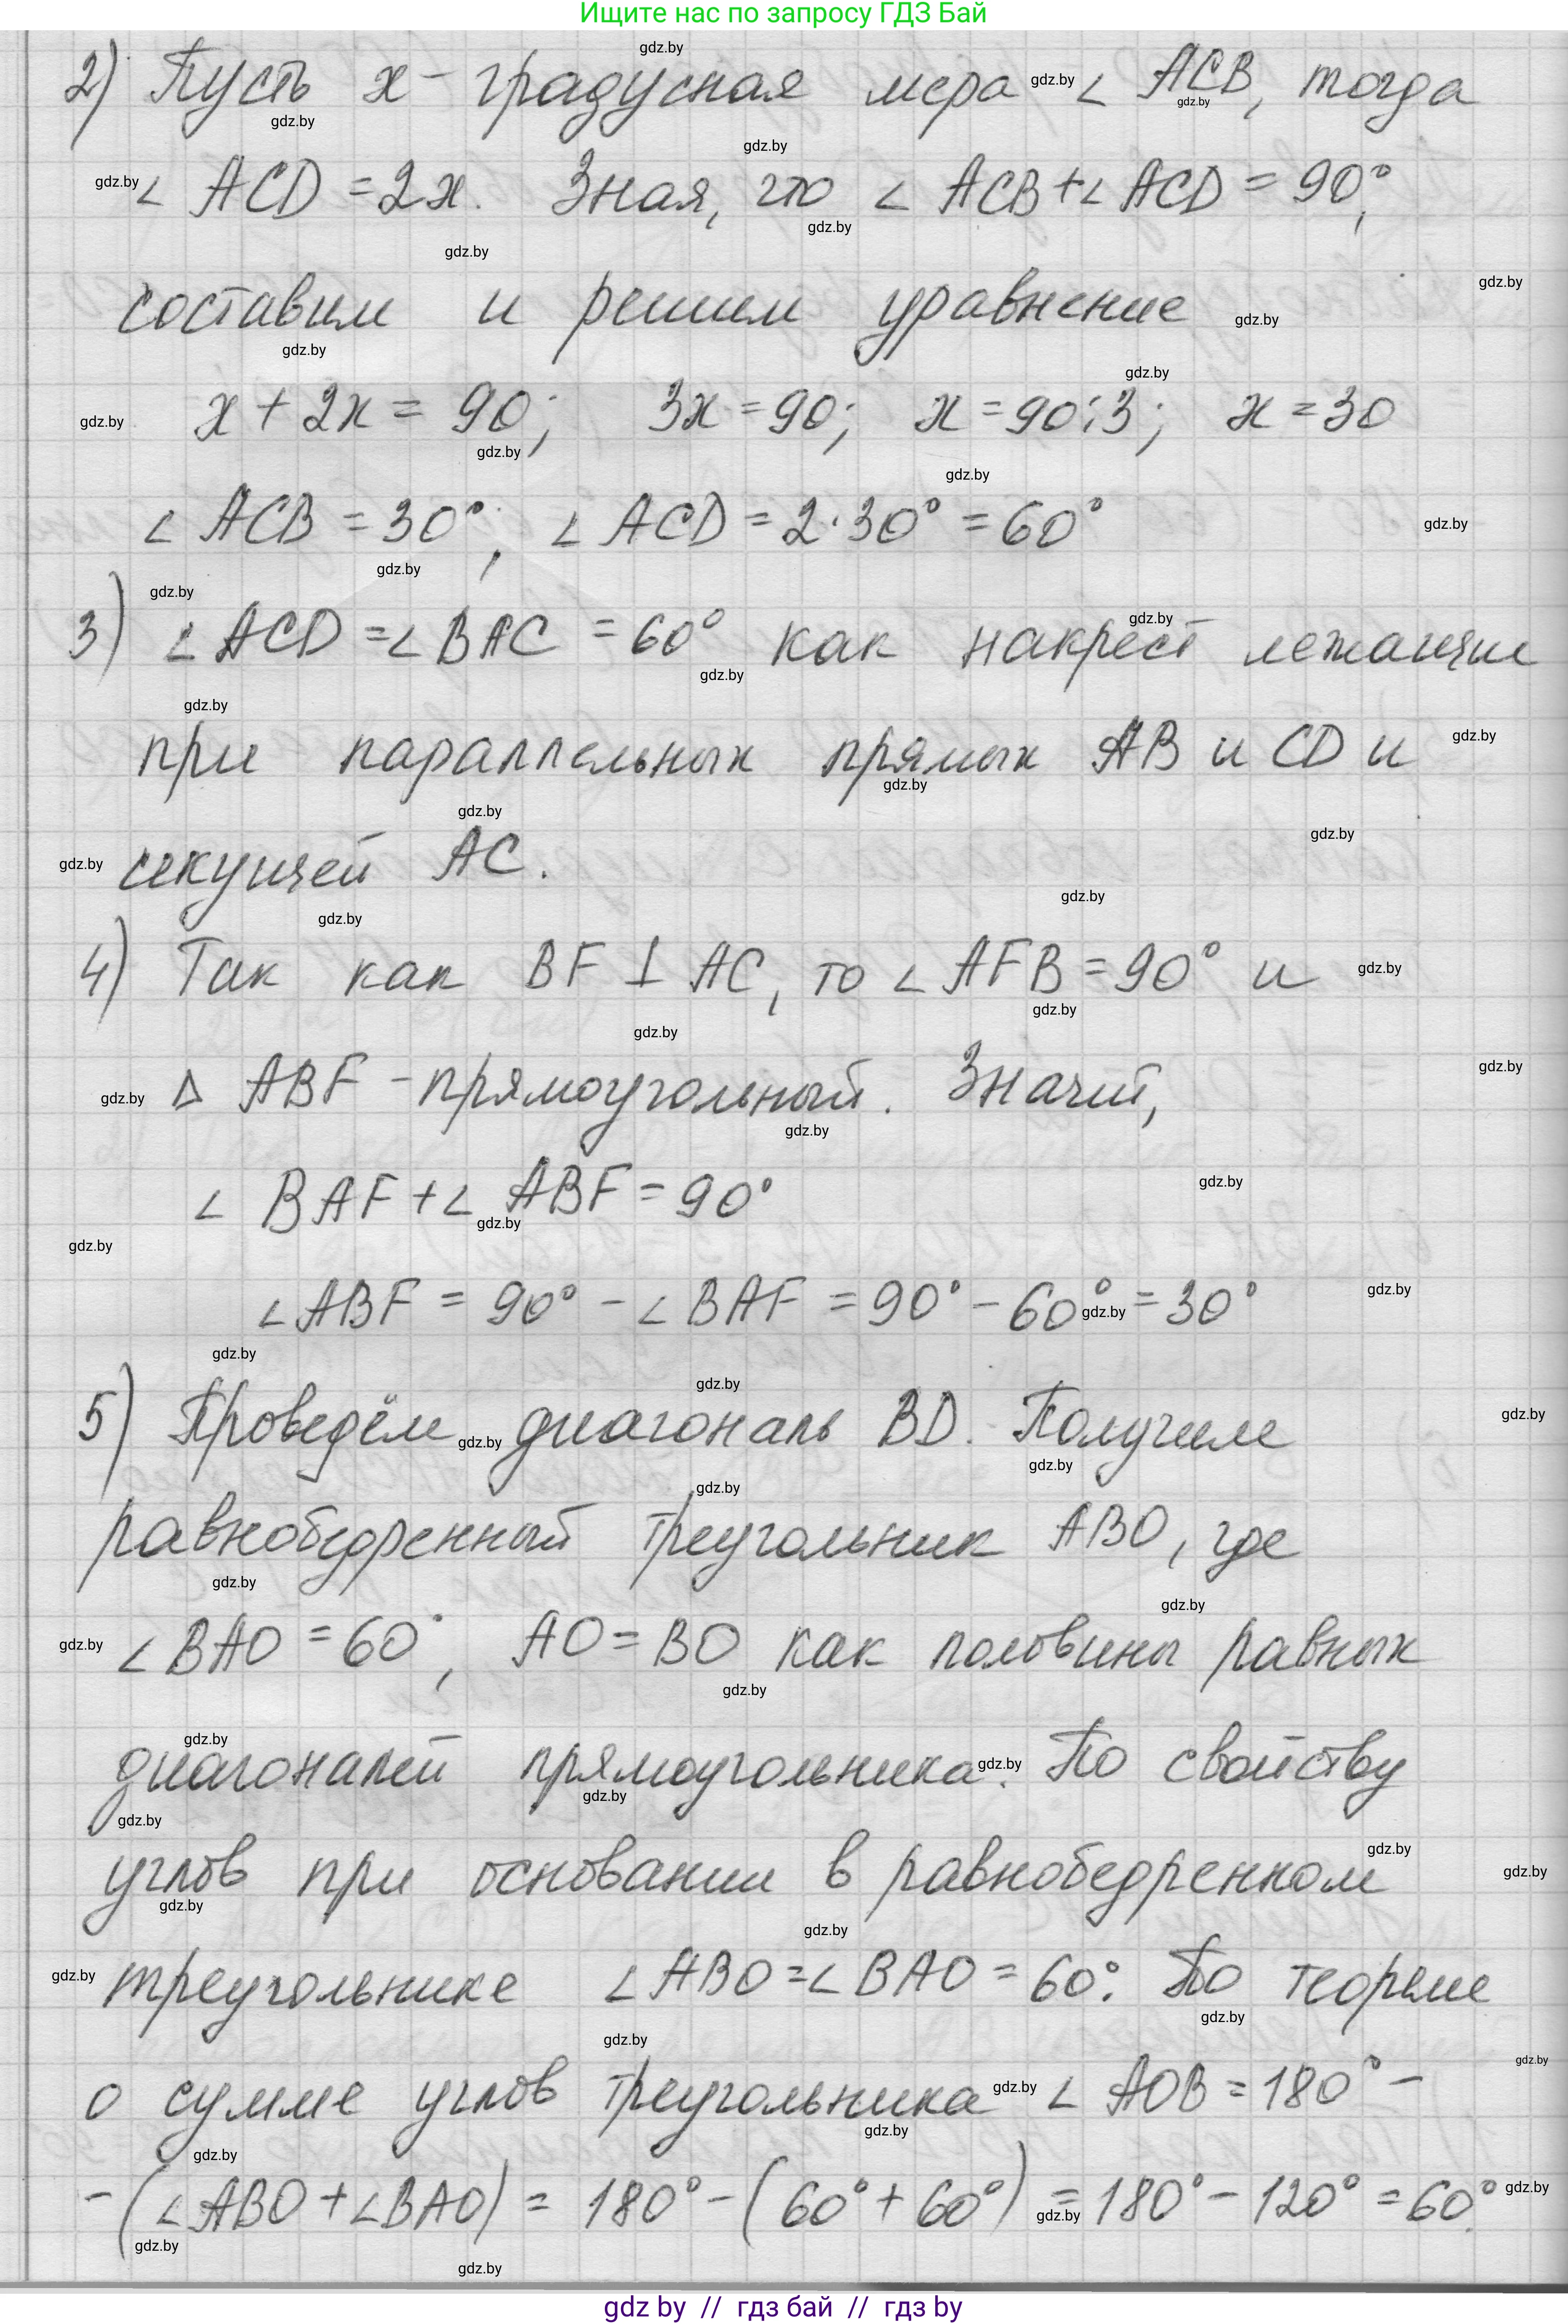 Ищите нас по запросу ГДЗ Бай
2) Пусть x - градусная мера ∠ ACB, тогда
∠ ACD = 2x. Зная, что ∠ ACB + ∠ ACD = 90°,
составим и решим уравнение
x + 2x = 90; 3x = 90; x = 90:3; x = 30
∠ ACB = 30°; ∠ ACD = 2·30° = 60°
3) ∠ ACD = ∠ BAC = 60° как накрест лежащие
при параллельных прямых AB и CD и
секущей AC.
4) Так как BF ⊥ AC, то ∠ AFB = 90° и
Δ ABF - прямоугольный. Значит,
∠ BAF + ∠ ABF = 90°
∠ ABF = 90° - ∠ BAF = 90° - 60° = 30°
5) Проведём диагональ BD. Получим
равнобедренный треугольник ABO, где
∠ BAO = 60°, AO = BO как половины равных
диагоналей прямоугольника. По свойству
углов при основании в равнобедренном
треугольнике ∠ ABO = ∠ BAO = 60°. По теореме
о сумме углов треугольника ∠ AOB = 180° -
- (∠ ABO + ∠ BAO) = 180° - (60° + 60°) = 180° - 120° = 60°.
gdz by // гдз бай // гдз by